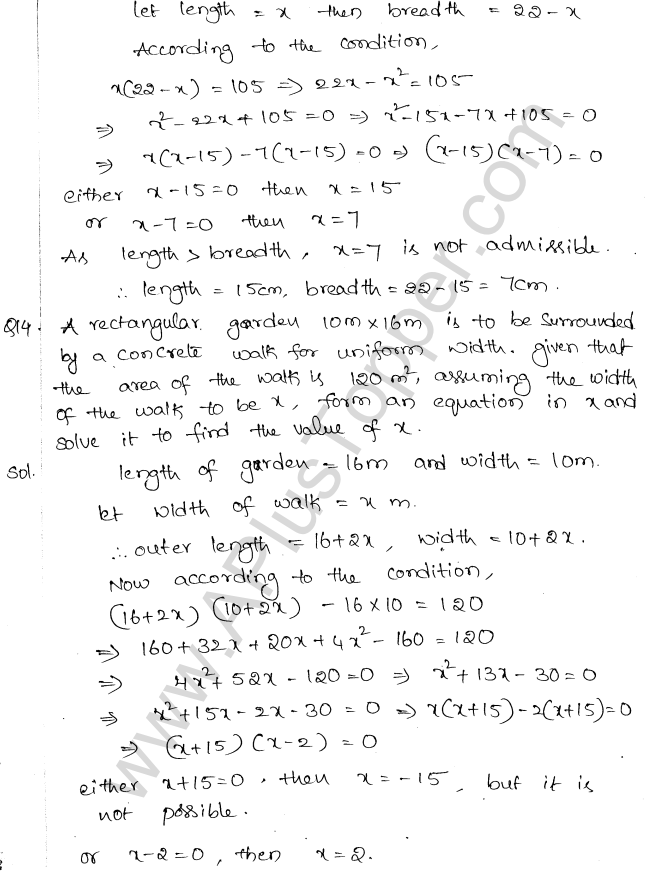 let length = x then breadth = 22 - x
According to the condition,
x(22 - x) = 105 ⇒ 22x - x² = 105
⇒ x² - 22x + 105 = 0 ⇒ x² - 15x - 7x + 105 = 0
⇒ x(x-15) - 7(x-15) = 0 ⇒ (x-15)(x-7) = 0
either x - 15 = 0 then x = 15
or x - 7 = 0 then x = 7
As length > breadth, x = 7 is not admissible.
∴ length = 15cm, breadth = 22 - 15 = 7cm.
Q14. A rectangular garden 10m × 16m is to be surrounded
by a concrete walk for uniform width. given that
the area of the walk is 120 m², assuming the width
of the walk to be x, form an equation in x and
solve it to find the value of x.
Sol. length of garden = 16m and width = 10m.
let width of walk = x m.
∴ outer length = 16+2x, width = 10+2x.
Now according to the condition,
(16+2x) (10+2x) - 16×10 = 120
⇒ 160 + 32x + 20x + 4x² - 160 = 120
⇒ 4x² + 52x - 120 = 0 ⇒ x² + 13x - 30 = 0
⇒ x² + 15x - 2x - 30 = 0 ⇒ x(x+15) - 2(x+15) = 0
⇒ (x+15) (x-2) = 0
either x+15 = 0, then x = -15, but it is
not possible.
or x-2 = 0, then x = 2.
www.APlusTopper.com